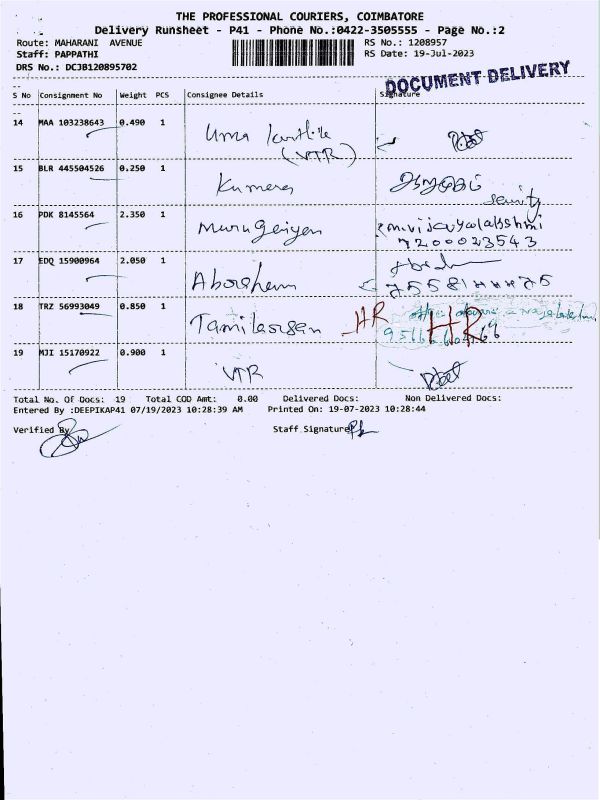 THE PROFESSIONAL COURIERS, COIMBATORE
Delivery Runsheet - P41 - Phone No.:0422-3505555 - Page No.:2
Route: MAHARANI AVENUE RS No.: 1208957
Staff: PAPPATHI RS Date: 19-Jul-2023
DRS No.: DCJB120895702
DOCUMENT DELIVERY
S No Consignment No Weight PCS Consignee Details Signature
14 MAA 103238643 0.490 1 Uma
(VTR)
15 BLR 445504526 0.250 1
16 PDK 8145564 2.350 1 vijayalakshmi
7200023543
17 EDQ 15900964 2.050 1
18 TRZ 56993049 0.850 1 HR HR
19 MJI 15170922 0.900 1 VTR
Total No. Of Docs: 19 Total COD Amt: 0.00 Delivered Docs: Non Delivered Docs:
Entered By :DEEPIKAP41 07/19/2023 10:28:39 AM Printed On: 19-07-2023 10:28:44
Verified By Staff Signature